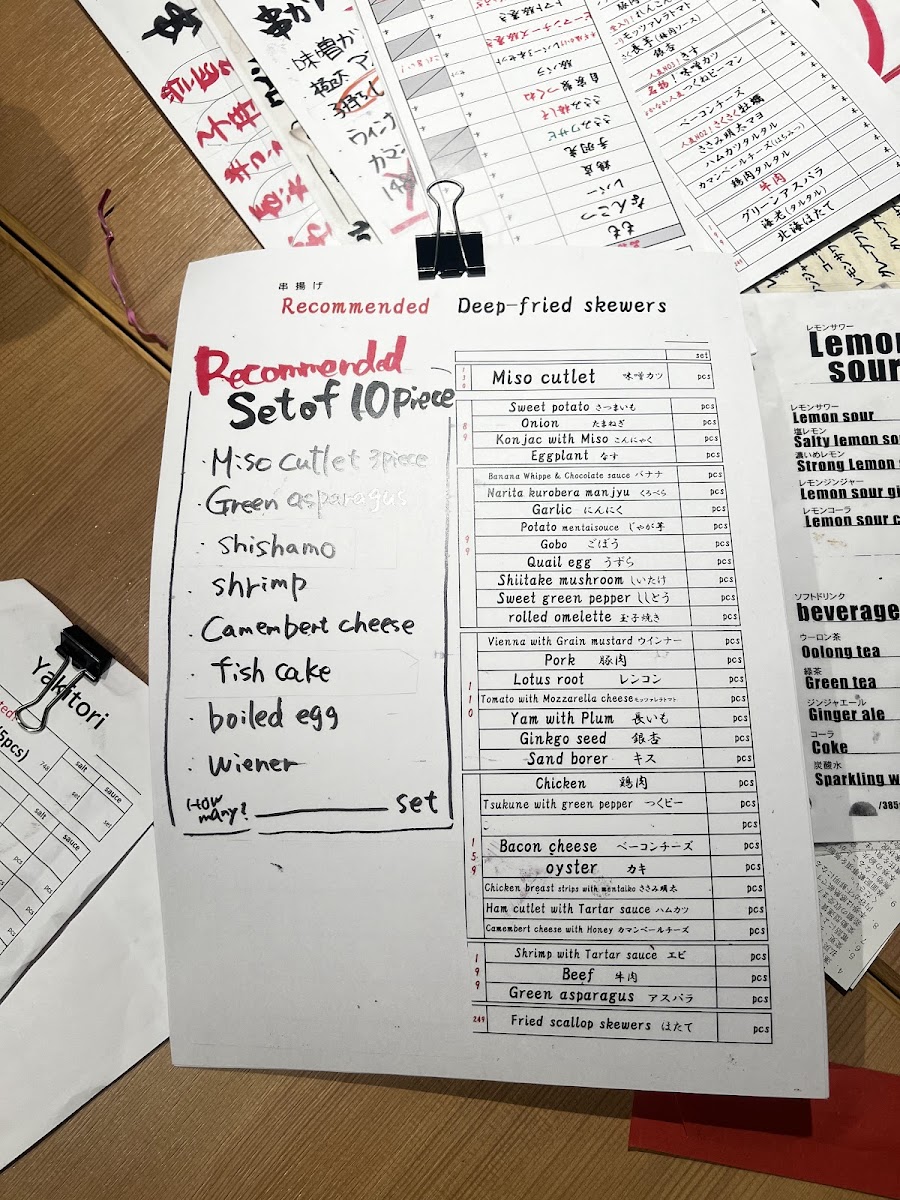 串揚げ
Recommended Deep-fried skewers
Recommended
Set of 10 piece
・Miso cutlet 3piece
・Green asparagus
・shishamo
・shrimp
・Camembert cheese
・fish cake
・boiled egg
・wiener
How many? set
set
Miso cutlet 味噌カツ pcs
89
Sweet potato さつまいも pcs
Onion たまねぎ pcs
Konjac with Miso こんにゃく pcs
Eggplant なす pcs
99
Banana Whippe & Chocolate sauce バナナ pcs
Narita kurobera manjyu くろべら pcs
Garlic にんにく pcs
Potato mentaisouce じゃが芋 pcs
Gobo ごぼう pcs
Quail egg うずら pcs
Shiitake mushroom しいたけ pcs
Sweet green pepper ししとう pcs
rolled omelette 玉子焼き pcs
110
Vienna with Grain mustard ウインナー pcs
Pork 豚肉 pcs
Lotus root レンコン pcs
Tomato with Mozzarella cheese モッツァレラトマト pcs
Yam with Plum 長いも pcs
Ginkgo seed 銀杏 pcs
Sand borer キス pcs
159
Chicken 鶏肉 pcs
Tsukune with green pepper つくピー pcs
pcs
Bacon cheese ベーコンチーズ pcs
oyster カキ pcs
Chicken breast strips with mentaiko ささみ明太 pcs
Ham cutlet with Tartar sauce ハムカツ pcs
Camembert cheese with Honey カマンベールチーズ pcs
199
Shrimp with Tartar sauce エビ pcs
Beef 牛肉 pcs
Green asparagus アスパラ pcs
249
Fried scallop skewers ほたて pcs
レモンサワー
Lemon
sour
レモンサワー
Lemon sour
塩レモン
Salty lemon so
濃いめレモン
Strong Lemon
レモンジンジャー
Lemon sour gi
レモンコーラ
Lemon sour c
ソフトドリンク
beverage
ウーロン茶
Oolong tea
緑茶
Green tea
ジンジャエール
Ginger ale
コーラ
Coke
炭酸水
Sparkling w
/385
Yakitori
5pcs)
salt
sauce
set
set
salt
sauce
pcs
pcs
pcs
トマト豚巻き
ピーマンチーズ豚巻き
豚バラ
自家製つくね
ささみ梅しそ
ささみワサビ
手羽先
レバー
なんこつ
もも
モッツァレラトマト
長芋(梅肉ソース)
銀杏
人気NO1!きす
名物!味噌カツ
つくねピーマン
ベーコンチーズ
人気NO2!さくさく牡蠣
ささみ明太マヨ
ハムカツタルタル
カマンベールチーズ(はちみつ)
鶏肉タルタル
牛肉
グリーンアスパラ
海老(タルタル)
北海ほたて
199
249